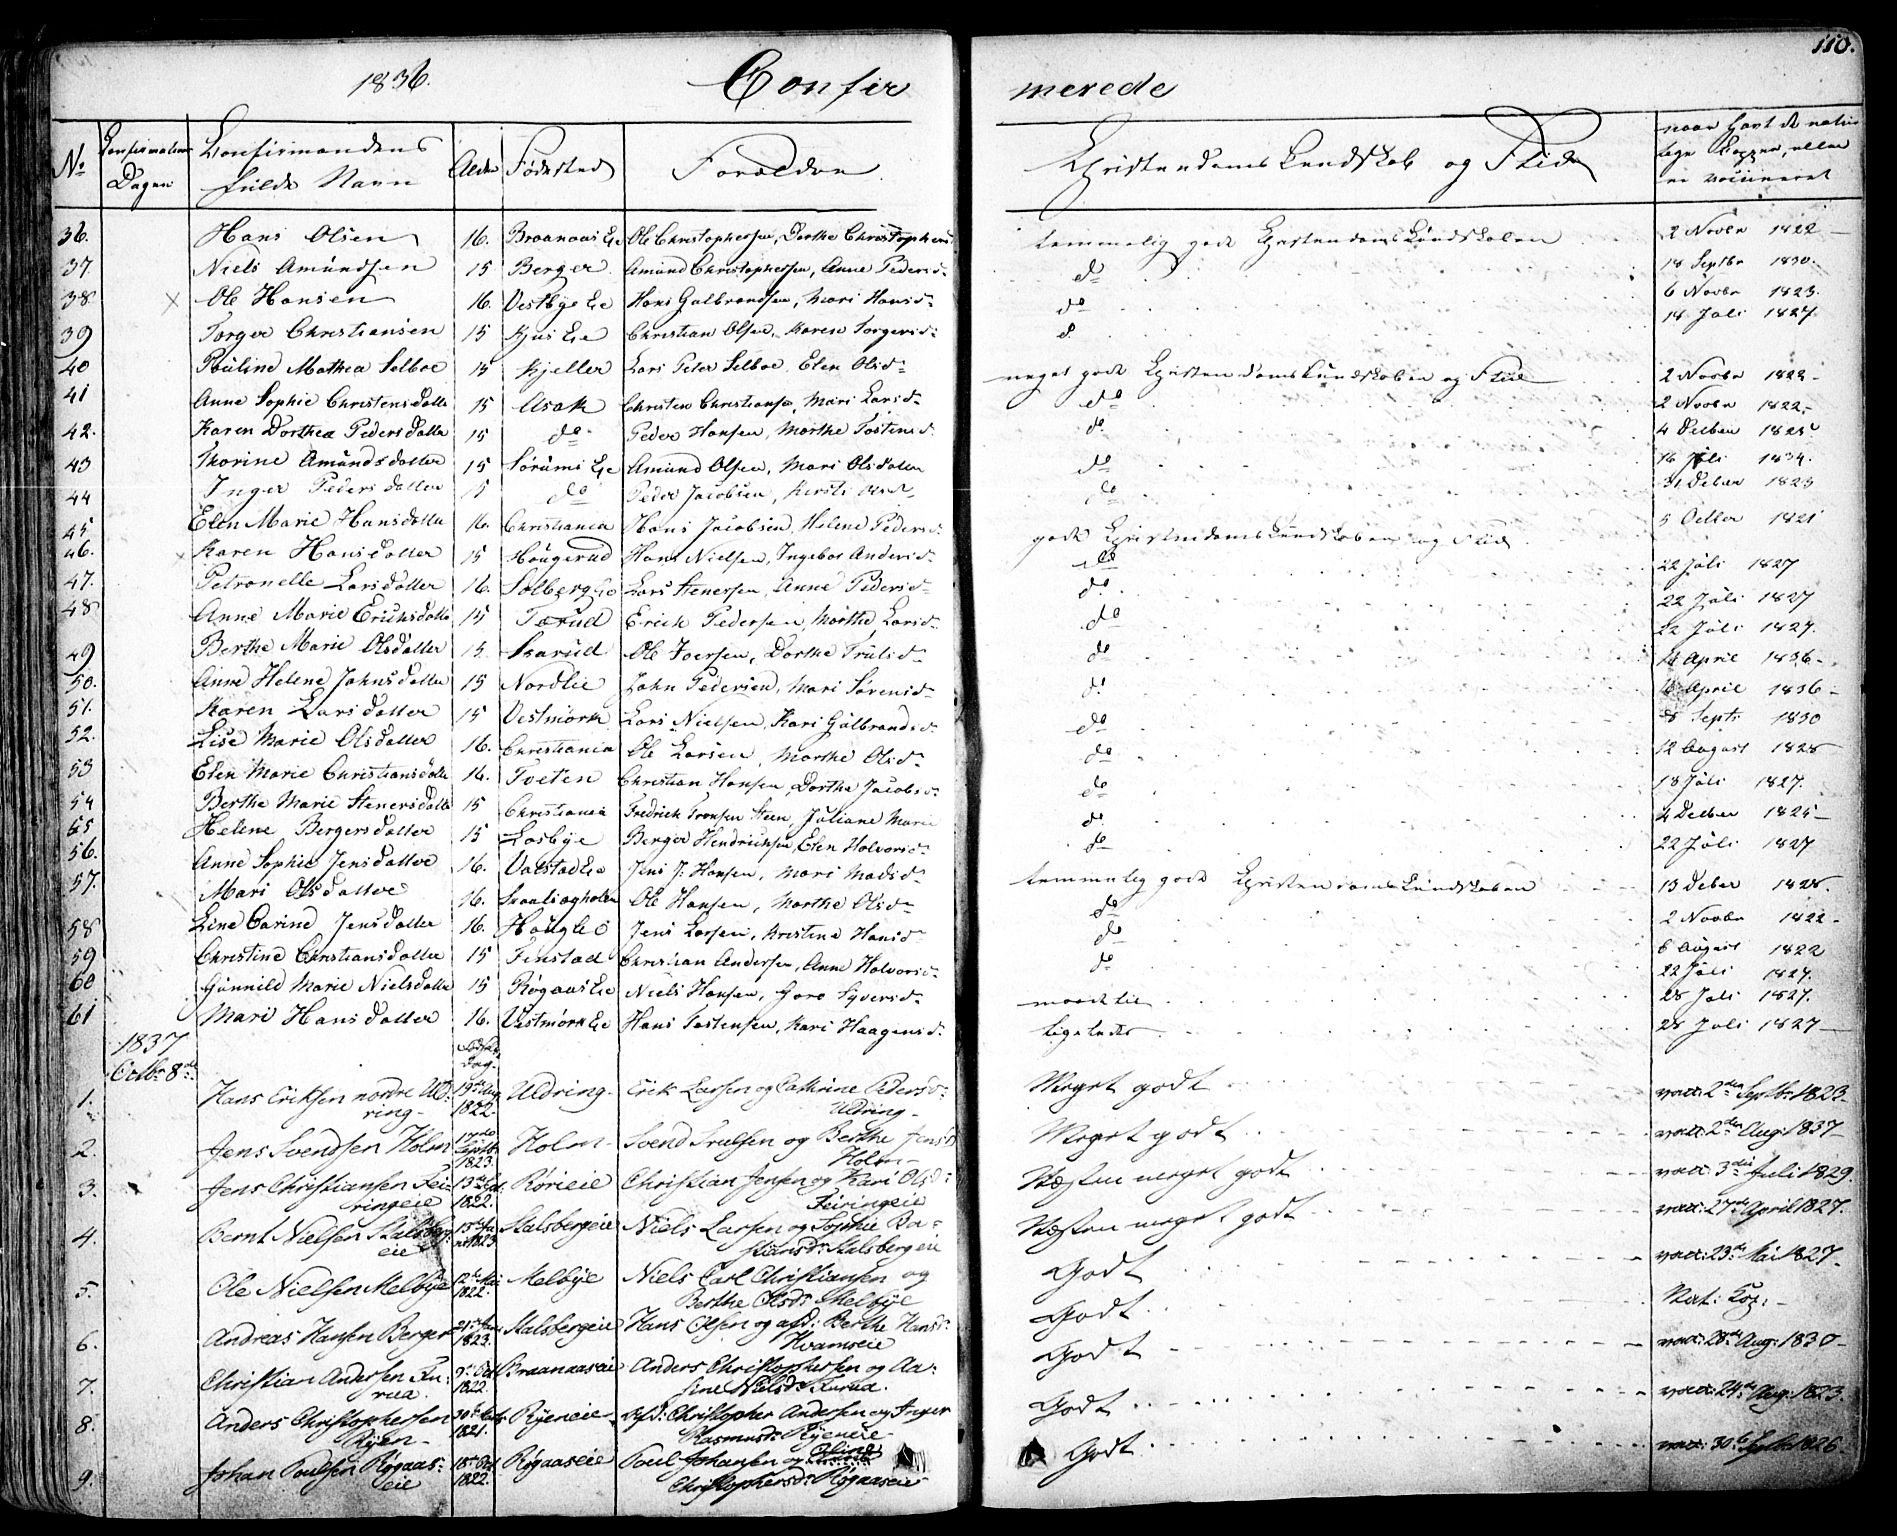 110.
1836. Confirmerede
No Confirmations Dagen Confirmandens fulde Navn Alder Fødested Forældre Christendomskundskab og Flid naar havt de naturlige Kopper, eller er vaccineret
36. Hans Olsen 16. Braanaas Eie Ole Christophersen, Dorthe Christophersd temmelig gode Christendomskundskaber 2 Novbr 1822
37 Niels Amundsen 15 Berger Amund Christophersen, Anne Pedersd. do 18 Septbr 1830.
38 × Ole Hansen 16. Vestbye Eie Hans Gulbrandsen, Mari Hansd. do 6 Novbr 1823.
39 Torger Christiansen 15 Kjus Eie Christian Olsen, Karen Torgersd. d. 18 Juli 1827.
40 Pauline Mathea Selboe 15 Kjeller Lars Peter Selboe, Elen Olsd. meget gode Christendomskundskaber og Flid 2 Novbr 1822
41 Anne Sophie Christensdatter 15 Asak Christen Christiansen, Mari Larsd. do 2 Novbr 1822
42. Karen Dorthea Pedersdatter 15 do Peder Hansen, Marthe Tostensd. do 4 Decbr 1825
43 Thorine Amundsdatter 15 Sørums Eie Amund Olsen, Mari Olsdatter do 16 Juli 1834.
44 Inger Pedersdatter 15 do Peder Jacobsen, Kersti do 31 Decbr 1823
45 Elen Marie Hansdatter 16. Christiania Hans Jacobsen, Helene Pedersd. gode Christendomskundskaber og Flid 5 Octbr 1821
46. × Karen Hansdatter 15 Haugerud Hans Nielsen, Ingebor Andersd. do 22 Juli 1827
47. Petronelle Larsdatter 16. Solberg Eie Lars Stenersen, Anne Pedersd. do 22 Juli 1827
48 Anne Marie Ericksdatter 15 Tærud Erick Pedersen, Marthe Larsd. do 22 Juli 1827.
49 Berthe Marie Olsdatter 15. Skarud Ole Iversen, Dorthe Trulsd. do April 1836
50. Anne Helene Johnsdatter 15 Nordlie John Pedersen, Mari Sørensd. do April 1836
51. Karen Larsdatter 15 Vestmork Lars Nielsen, Kari Gulbrandsd. do Septr 1830
52. Lise Marie Olsdatter 16. Christiania Ole Larsen, Marthe Olsd. do 12 August 1828
53 Elen Marie Christiansdatter 16. Tveten Christian Hansen, Dorthe Jacobsd. do 18 Juli 1827.
54 Berthe Marie Stenersdatter 15 Christiania Fredrick Tronsen Steen, Juliane Marie do 4 Decbr 1825
55 Helene Bergersdatter 15 Losbye Berger Hendricksen, Elen Halvorsd. do 22 Juli 1827
56. Anne Sophie Jensdatter 16. Valstad Eie Jens J. Hansen, Mari Madsd. temmelig gode Christendomskundskaber 13 Decbr 1828.
57. Mari Olsdatter 16. Skaalsagholen Ole Hansen, Marthe Olsd. do 2 Novbr 1822
58 Line Carine Jensdatter 16. Hauglie Jens Larsen, Kristine Hansd. do 6 August 1822
59 Christine Christiansdatter 15 Finstad Christian Andersen, Anne Halvorsd. do 22 Juli 1827.
60 Gunnild Marie Nielsdatter 15 Røgaas Eie Niels Hansen, Goro Syversd. maadelig 28 Juli 1827.
61 Mari Hansdatter 16. Vestmork Eie Hans Tostensen, Kari Haagensd. ligeledes 28 Juli 1827
1837 Octbr 8de Fødsels Dag.
1. Hans Eriksen nordre Uldring 19de Aug 1822 Uldring Erik Larsen og Cathrine Pedersd: Uldring Meget godt vacc: 2den Septbr 1823
2. Jens Svendsen Holm 17de Septb. 1823. Holm Svend Trulsen og Berthe Jensd Holm Meget godt vacc: 2den Aug: 1837
3. Jens Christiansen Feiringeie 13de 1822. Rørieie Christian Jensen og Kari Olsd: Feiringeie Næsten meget godt vacc: 3die Juli 1829.
4. Bernt Nielsen Stalsbergeie 15de 1823 Stalsbergeie Niels Larsen og Sophie Bastiansd: Stalsbergeie Næsten meget godt vacc: 27de April 1827.
5. Ole Nielsen Melbye 12te Mai 1822. Melbye Niels Carl Christiansen og Berthe Olsd: Melbye Godt vacc: 23de Mai 1827
6. Andreas Hansen Berger 21de 1823. Stalsbergeie Hans Olsen og afd: Berthe Hansd: Hvamseie Godt Nat: Kop:
7. Christian Andersen Furua. 9de Oct 1822. Braanaaseie Anders Christophersen og Aasine Nielsd: Furua. Godt vacc: 28de Aug: 1830
8. Anders Christophersen Ryen 30te 1821. Ryeneie Afd: Christopher Andersen og Inger Rasmusd: Ryeneie Godt vacc: 24de Aug: 1823.
9. Johan Paulsen Røgaaseie 18de Oct 1822. Røgaaseie Paul Johansen og Oline Christophersd: Røgaaseie Godt vacc: 30te Septbr 1826